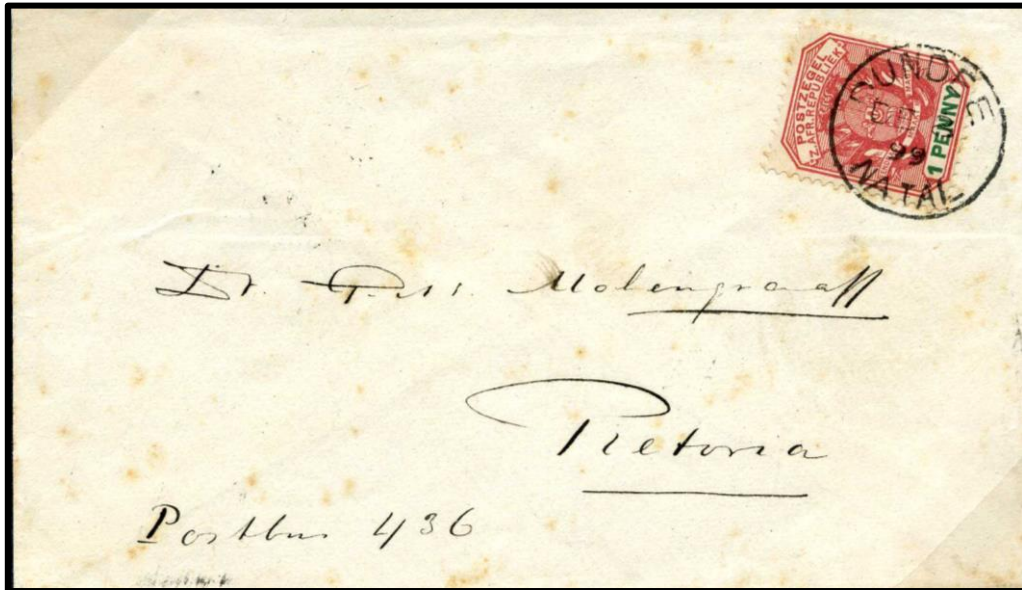 POSTZEGEL
Z. AFR. REPUBLIEK
1 PENNY
DUNDEE
99
NATAL
Dr. Molengraaff
Pretoria
Postbus 436